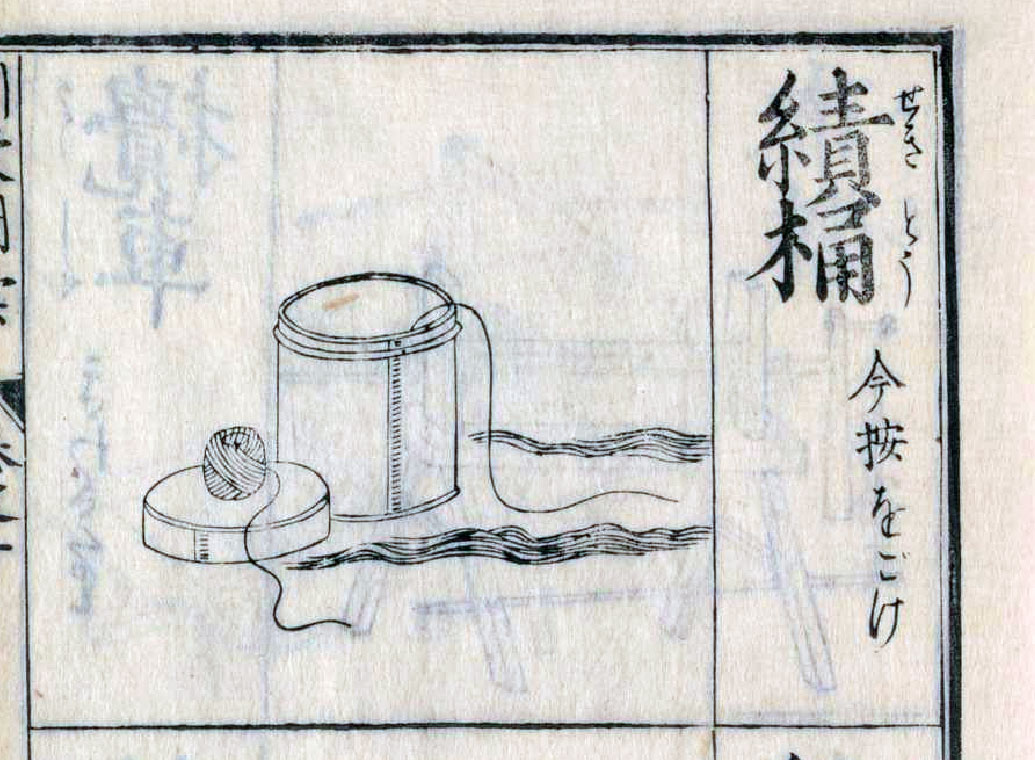 績桶
せきとう
今按をごけ